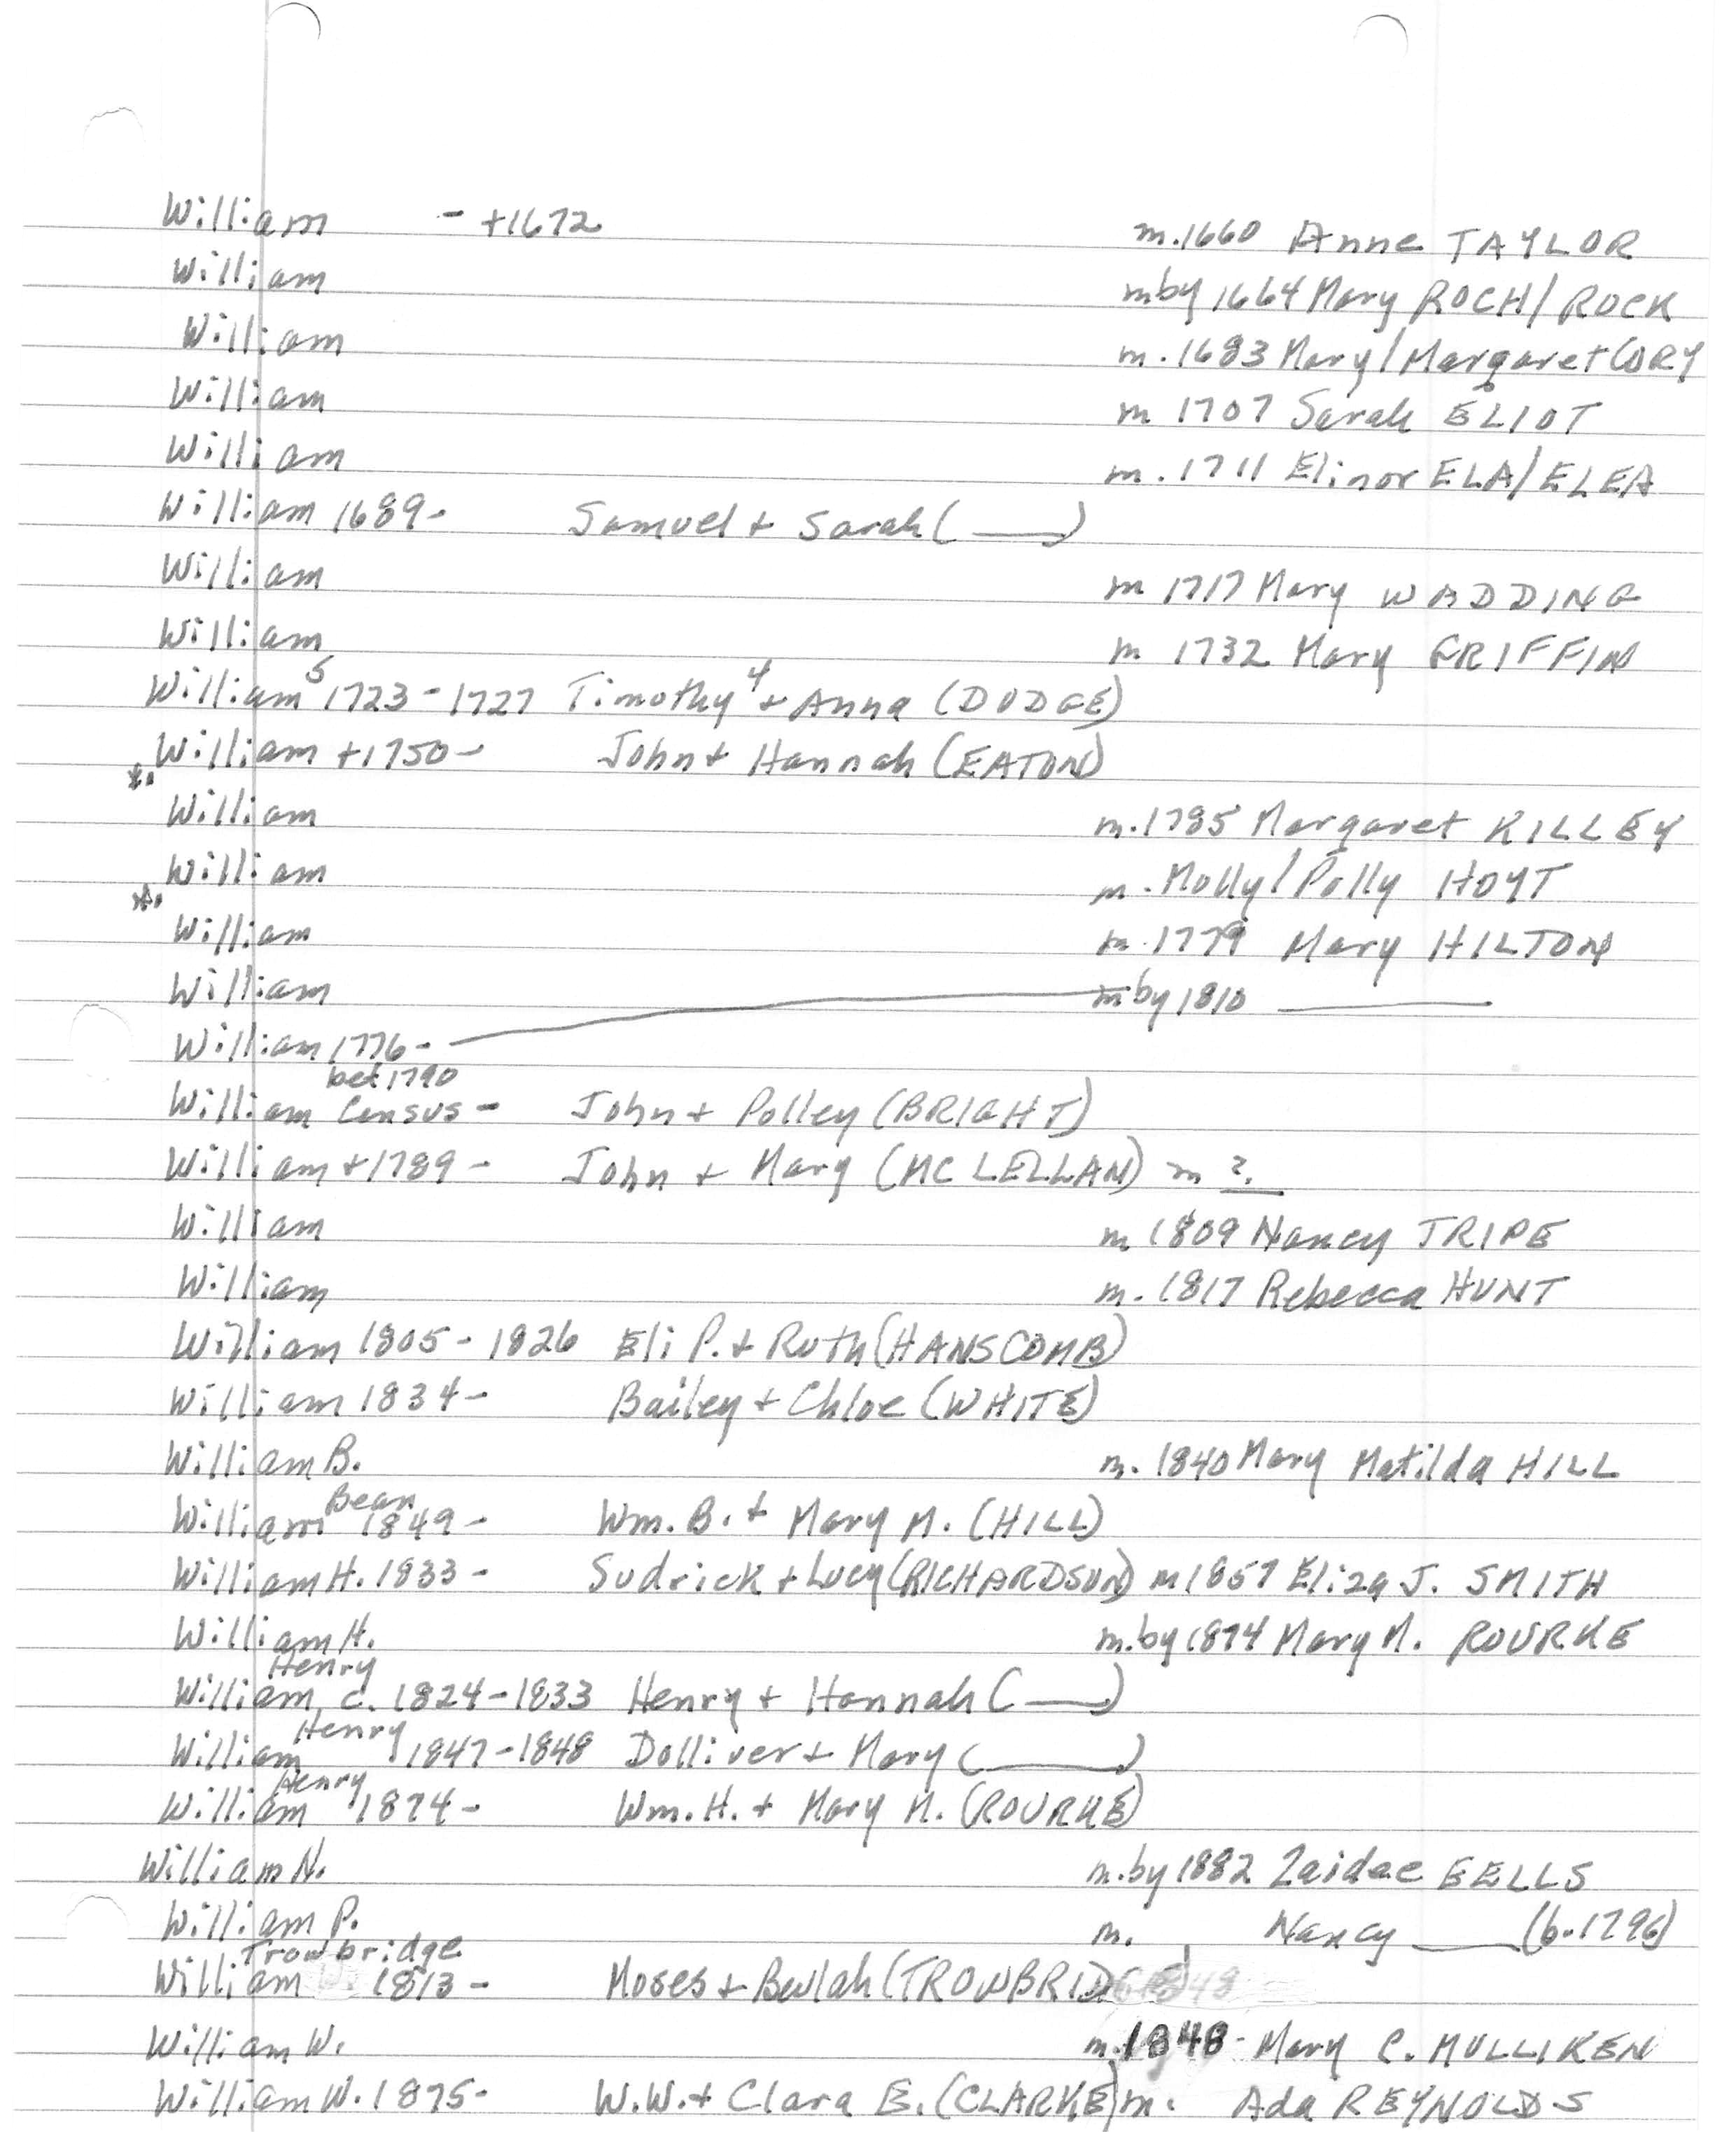 William - +1672 m.1660 Anne TAYLOR
William mby 1664 Mary ROCH/ROCK
William m. 1683 Mary/Margaret CORY
William m 1707 Sarah ELIOT
William m. 1711 Elinor ELA/ELEA
William 1689- Samuel + Sarah (___)
William m 1717 Mary WADDING
William m 1732 Mary GRIFFIN
William5 1723-1727 Timothy4 + Anna (DODGE)
William +1750- John + Hannah (EATON)
*. William m.1785 Margaret KILLEY
William m. Molly/Polly HOYT
*. William m.1779 Mary HILTON
William mby 1810 ___
William 1776-
bet 1790
William Census - John + Polley (BRIGHT)
William +1789- John + Mary (MCLELLAN) m ?.
William m 1809 Nancy TRIPE
William m. 1817 Rebecca HUNT
William 1805-1826 Eli P. + Ruth (HANSCOMB)
William 1834- Bailey + Chloe (WHITE)
William B. m. 1840 Mary Matilda HILL
Bean
William 1849- Wm. B. + Mary M. (HILL)
William H. 1833- Sudrick + Lucy (RICHARDSON) m 1857 Eliza J. SMITH
William H. m.by 1874 Mary M. ROURKE
Henry
William c. 1824-1833 Henry + Hannah (___)
Henry
William 1847-1848 Dolliver + Mary (___)
Henry
William 1874- Wm. H. + Mary M. (ROURKE)
William N. m.by 1882 Zaidee EELLS
William P. m. Nancy ___ (b.1796)
Trowbridge
William 1813- Moses + Beulah (TROWBRIDGE)
William W. m.1848- Mary C. MULLIKEN
William W. 1875- W.W. + Clara E. (CLARKE) m. Ada REYNOLDS